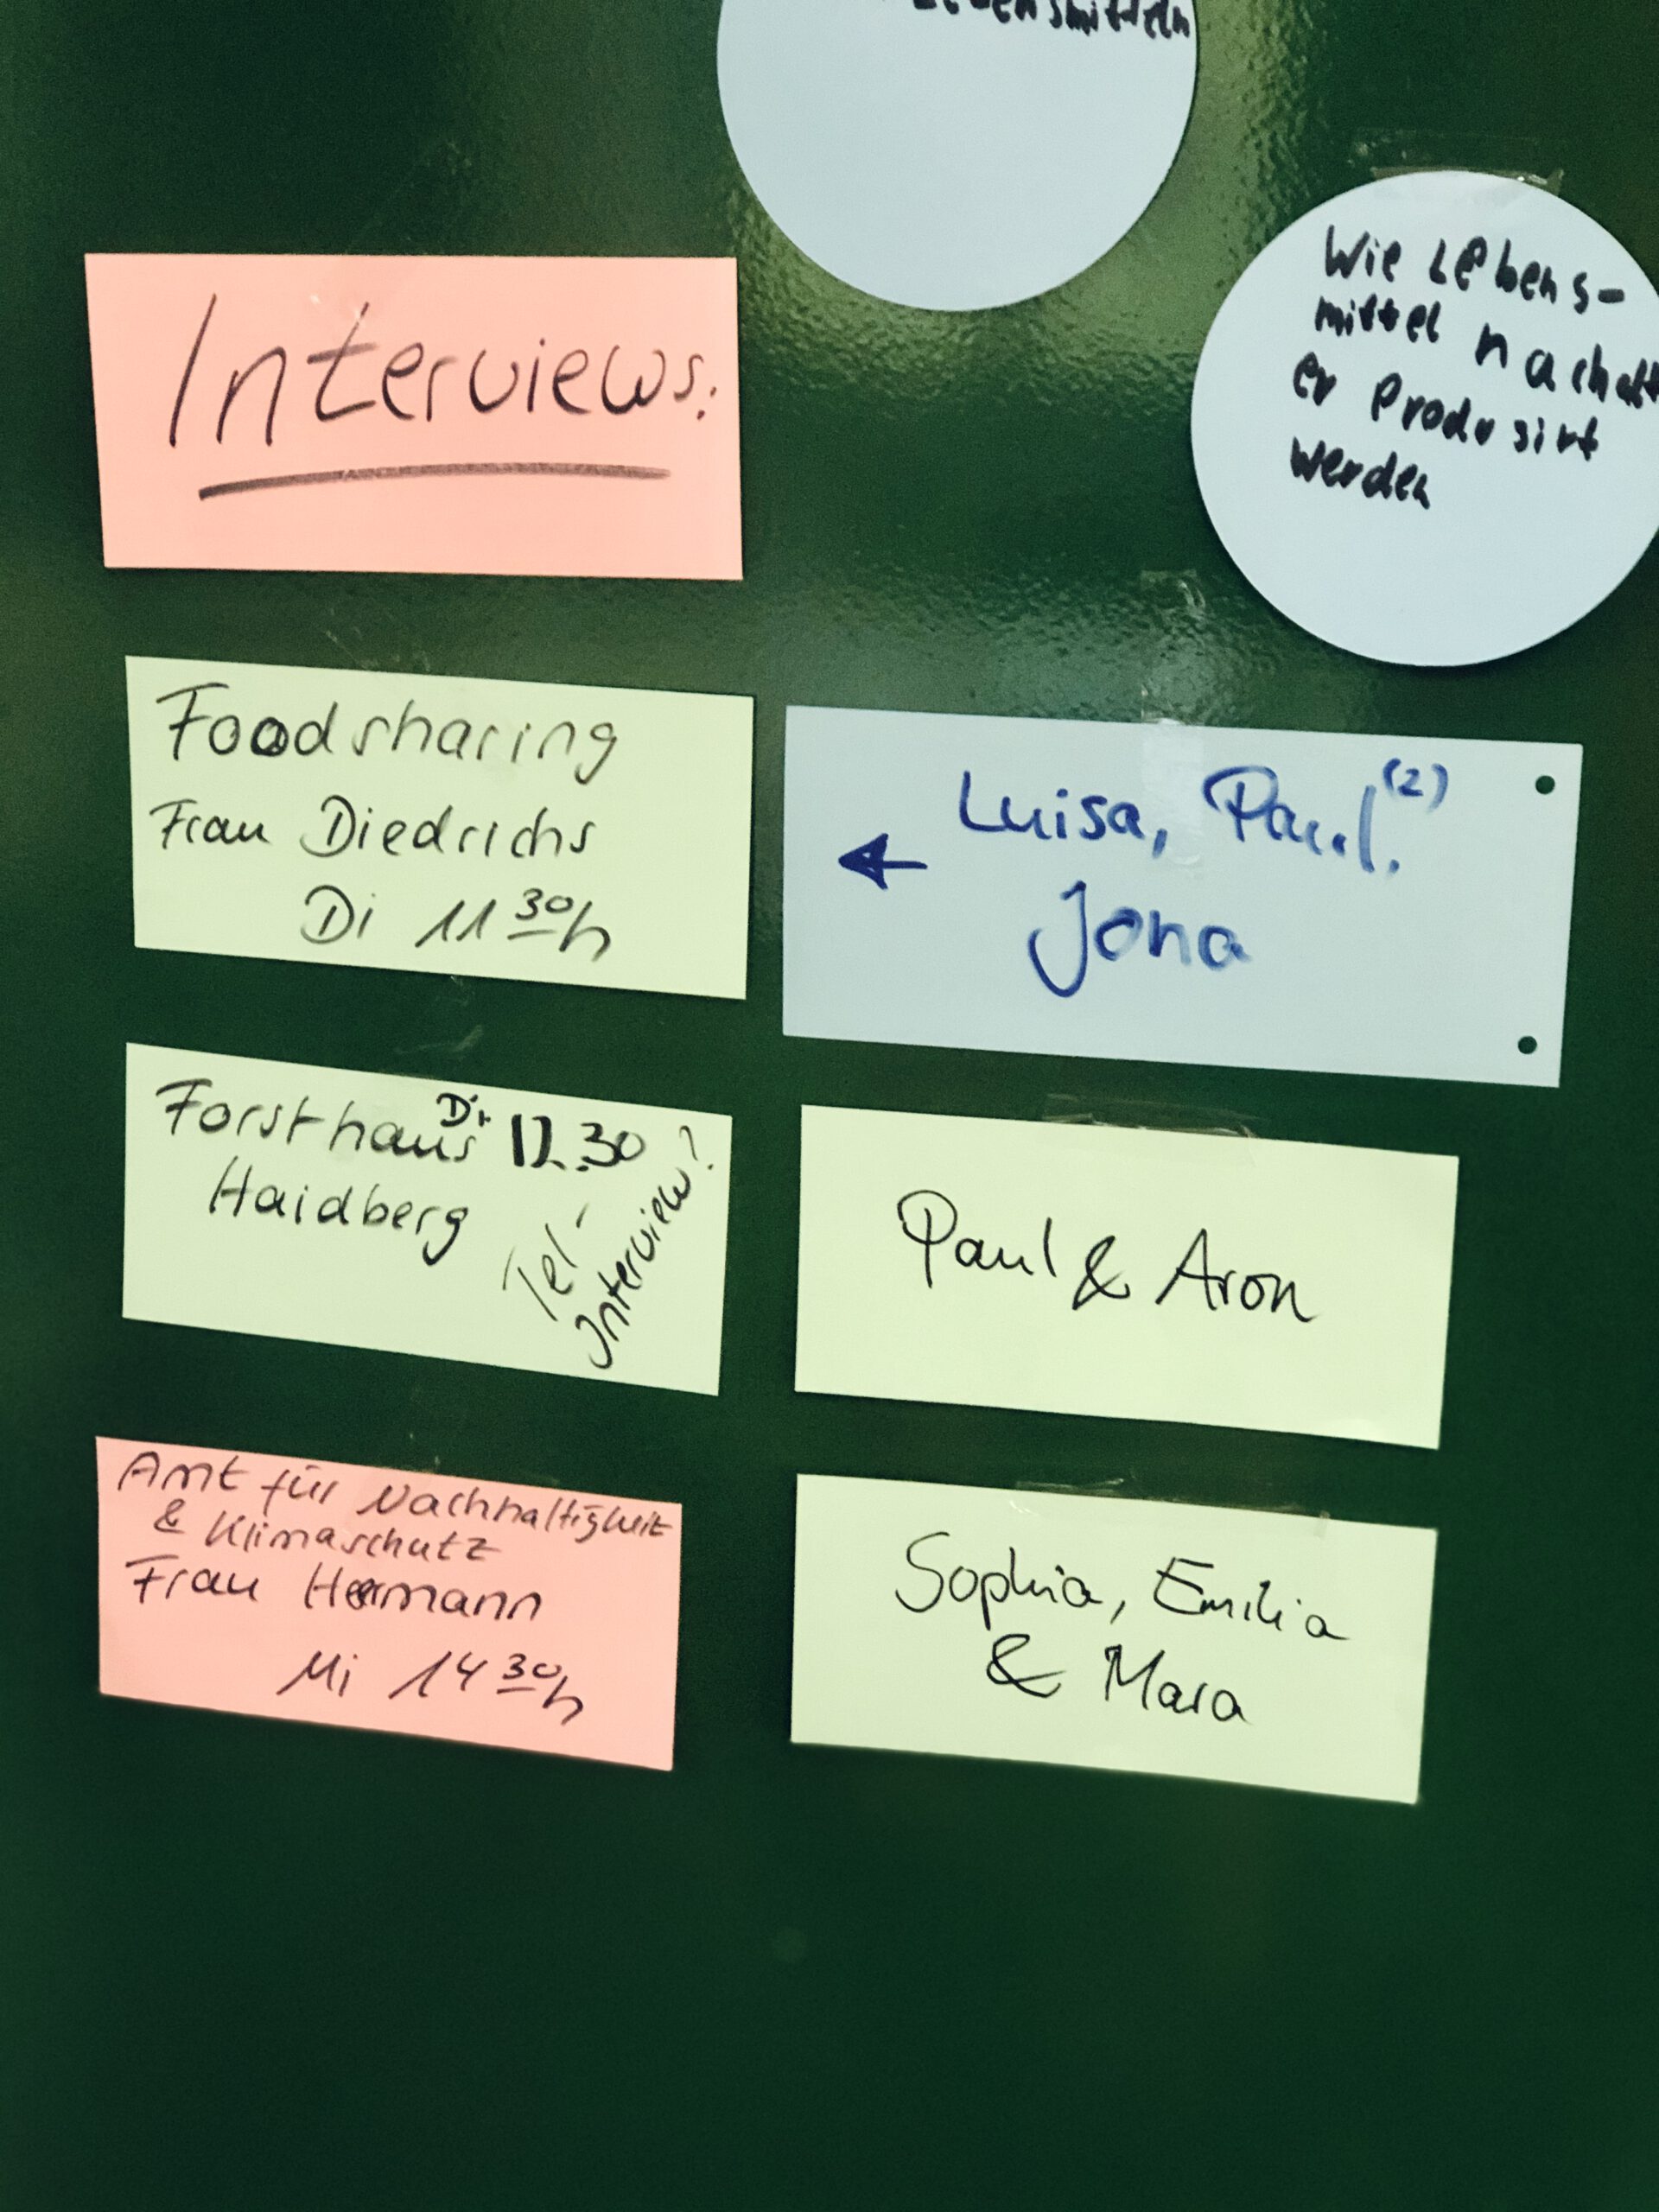 Lebensmitteln
Wie Lebens-
mittel nachalt
er Produsirt
werden
Interviews:
Foodsharing
Frau Diedrichs
Di 11 30h
← Luisa, Paul (2)
Jona
Forsthaus Di. 12.30
Haidberg
Tel-
Interview?
Paul & Aron
Amt für Nachhaltigkeit
& Klimaschutz
Frau Hermann
Mi 14 30h
Sophia, Emilia
& Mara